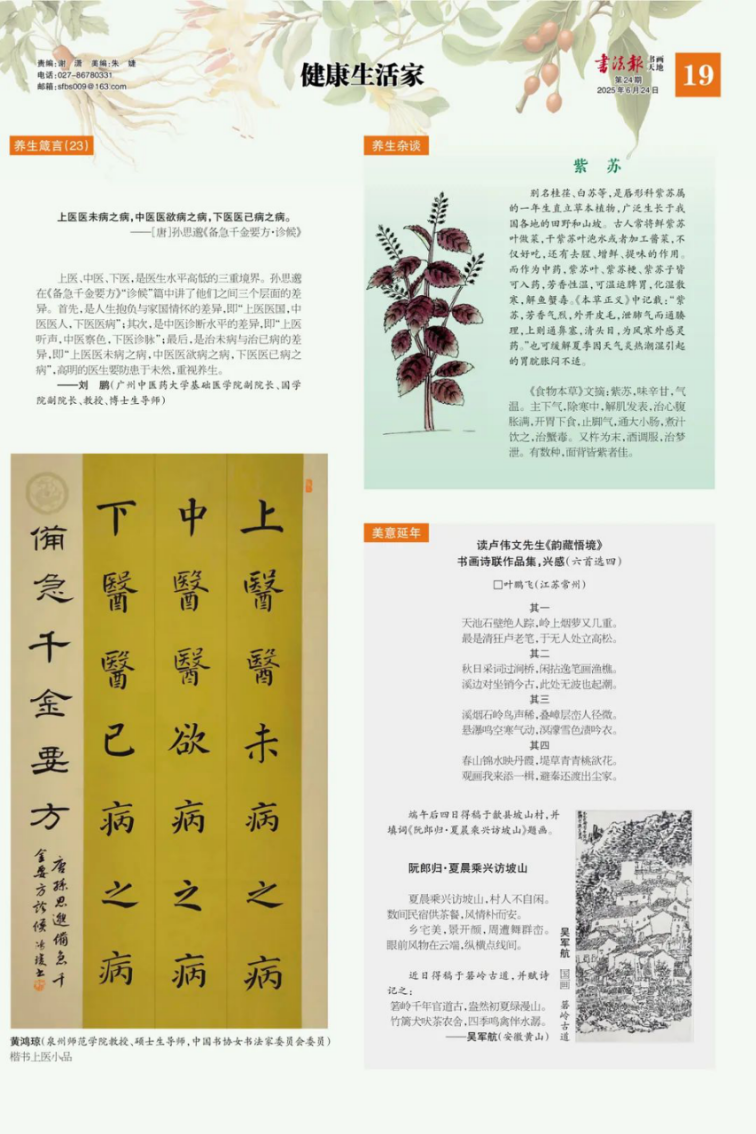 责编:谢 潇 美编:朱 婕
电话:027-86780331
邮箱:sfbs009@163.com
健康生活家
书法报 书画天地
第24期
2025年6月24日
19
养生箴言(23)
上医医未病之病,中医医欲病之病,下医医已病之病。
——[唐]孙思邈《备急千金要方·诊候》
上医、中医、下医,是医生水平高低的三重境界。孙思邈
在《备急千金要方》“诊候”篇中讲了他们之间三个层面的差
异。首先,是人生抱负与家国情怀的差异,即“上医医国,中
医医人,下医医病”;其次,是中医诊断水平的差异,即“上医
听声,中医察色,下医诊脉”;最后,是治未病与治已病的差
异,即“上医医未病之病,中医医欲病之病,下医医已病之
病”,高明的医生要防患于未然,重视养生。
——刘 鹏(广州中医药大学基础医学院副院长、国学
院副院长、教授、博士生导师)
上醫醫未病之病
中醫醫欲病之病
下醫醫已病之病
備急千金要方
唐孫思邈備急千
金要方診候
黄鸿琼(泉州师范学院教授、硕士生导师,中国书协女书法家委员会委员)
楷书上医小品
养生杂谈
紫 苏
别名桂荏、白苏等,是唇形科紫苏属
的一年生直立草本植物,广泛生长于我
国各地的田野和山坡。古人常将鲜紫苏
叶做菜,干紫苏叶泡水或者加工酱菜,不
仅好吃,还有去腥、增鲜、提味的作用。
而作为中药,紫苏叶、紫苏梗、紫苏子皆
可入药,芳香性温,可温运脾胃,化湿散
寒,解鱼蟹毒。《本草正义》中记载:“紫
苏,芳香气烈,外开皮毛,泄肺气而通腠
理,上则通鼻塞,清头目,为风寒外感灵
药。”也可缓解夏季因天气炎热潮湿引起
的胃脘胀闷不适。
《食物本草》文摘:紫苏,味辛甘,气
温。主下气,除寒中,解肌发表,治心腹
胀满,开胃下食,止脚气,通大小肠,煮汁
饮之,治蟹毒。又杵为末,酒调服,治梦
泄。有数种,面背皆紫者佳。
美意延年
读卢伟文先生《韵藏悟境》
书画诗联作品集,兴感(六首选四)
□叶鹏飞(江苏常州)
其一
天池石壁绝人踪,岭上烟萝又几重。
最是清狂卢老笔,于无人处立高松。
其二
秋日采词过涧桥,闲拈逸笔画渔樵。
溪边对坐销今古,此处无波也起潮。
其三
溪烟石岭鸟声稀,叠嶂层峦人径微。
悬瀑鸣空寒气动,溟濛雪色渍吟衣。
其四
春山锦水映丹霞,堤草青青桃欲花。
观画我来添一楫,避秦还渡出尘家。
端午后四日得稿于歙县坡山村,并
填词《阮郎归·夏晨乘兴访坡山》题画。
阮郎归·夏晨乘兴访坡山
夏晨乘兴访坡山,村人不自闲。
数间民宿供茶餐,风情朴而安。
乡宅美,景开颜,周遭舞群峦。
眼前风物在云端,纵横点线间。
近日得稿于箬岭古道,并赋诗
记之:
箬岭千年官道古,盎然初夏绿漫山。
竹篱犬吠茶农舍,四季鸣禽伴水潺。
——吴军航(安徽黄山)
吴军航 国画 箬岭古道